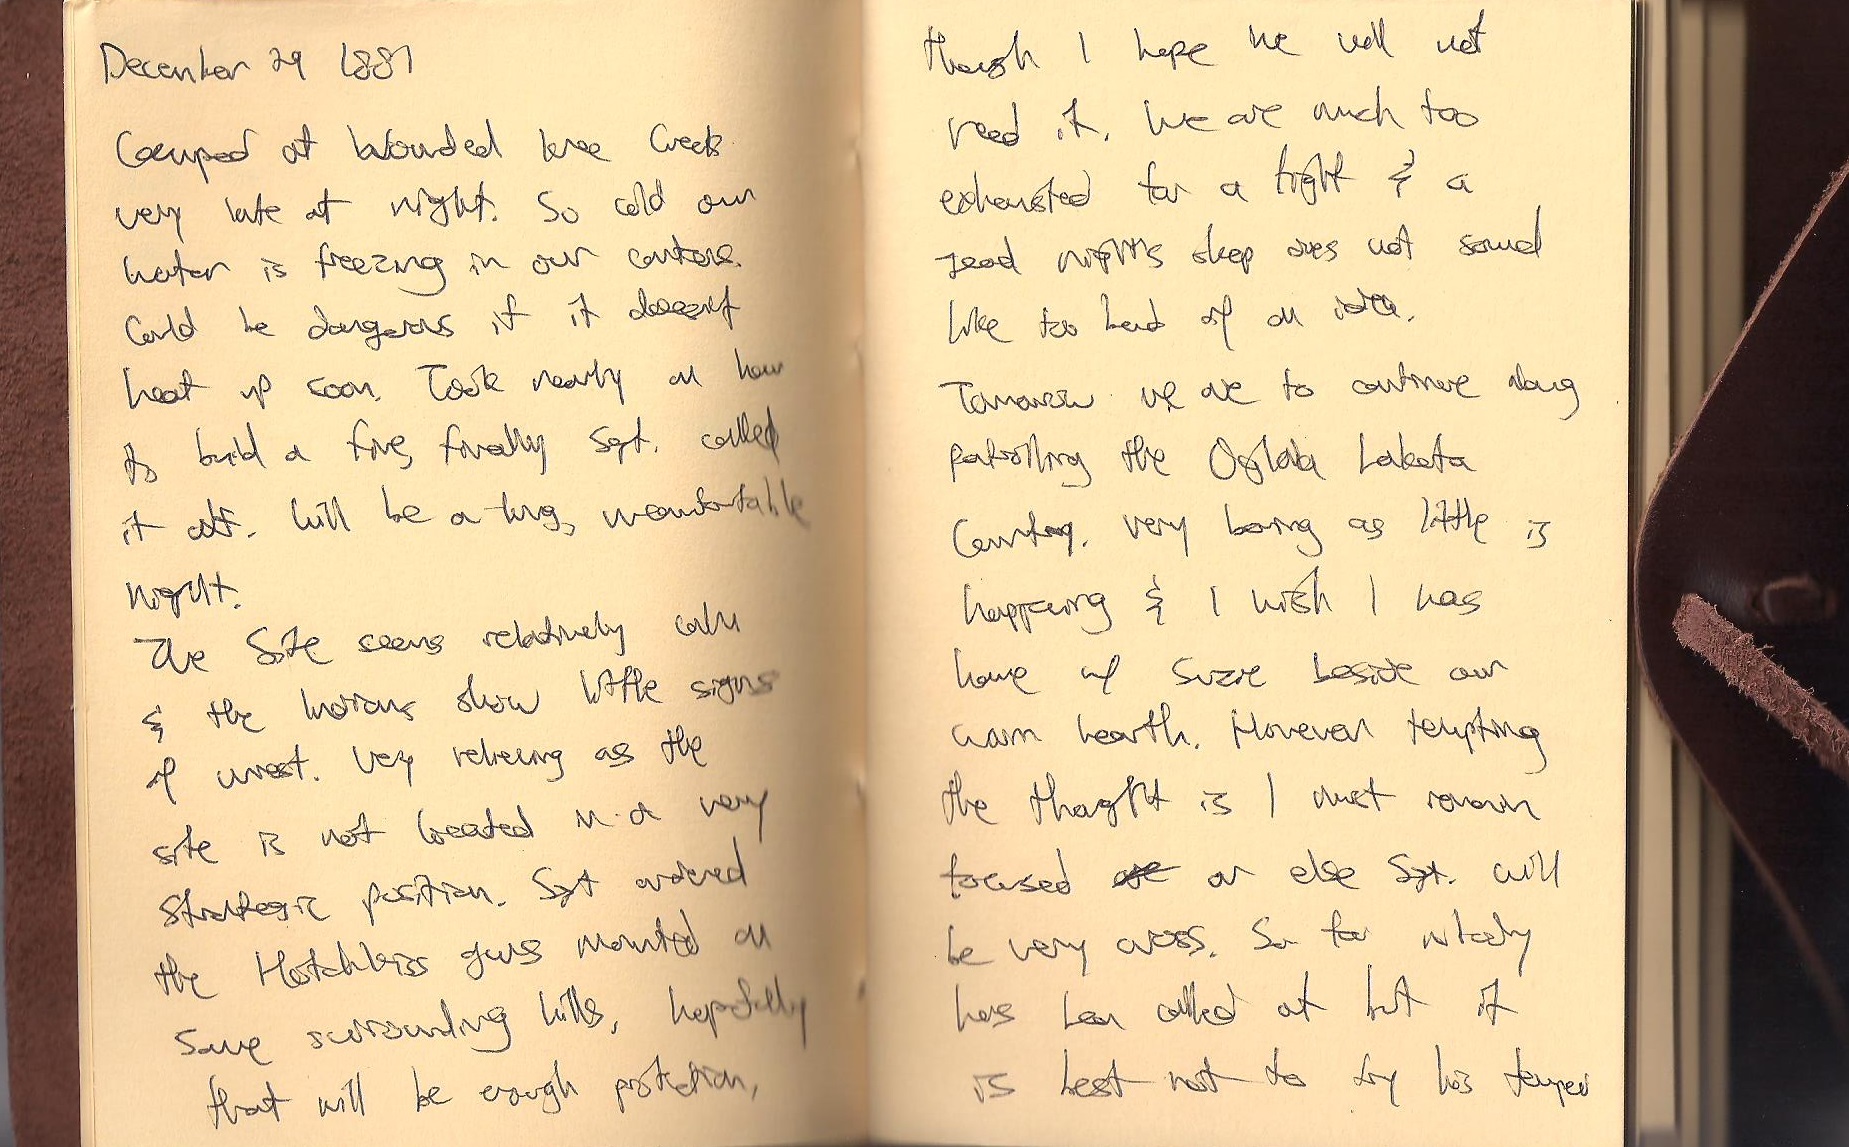 December 29 1881
Camped at Wounded knee Creek
very late at night. So cold our
water is freezing in our canteens.
Could be dangerous if it doesnt
heat up soon. Took nearly an hour
to build a fire, finally Sgt. called
it off. Will be a long, uncomfortable
night.
The Site seems relatively calm
& the Indians show little signs
of unrest. Very relieving as the
site is not located in a very
strategic position. Sgt ordered
the Hotchkiss guns mounted on
some surrounding hills, hopefully
that will be enough protection,
though I hope we will not
need it. We are much too
exhausted for a fight & a
good nights sleep does not sound
like too bad of an idea.
Tomorrow we are to continue along
patrolling the Oglala Lakota
Country. Very boring as little is
happening & I wish I was
home w/ Suzie beside our
warm hearth. However tempting
the thought is I must remain
focused or else Sgt. will
be very cross. So far nobody
has been called out but it
is best not to try his temper